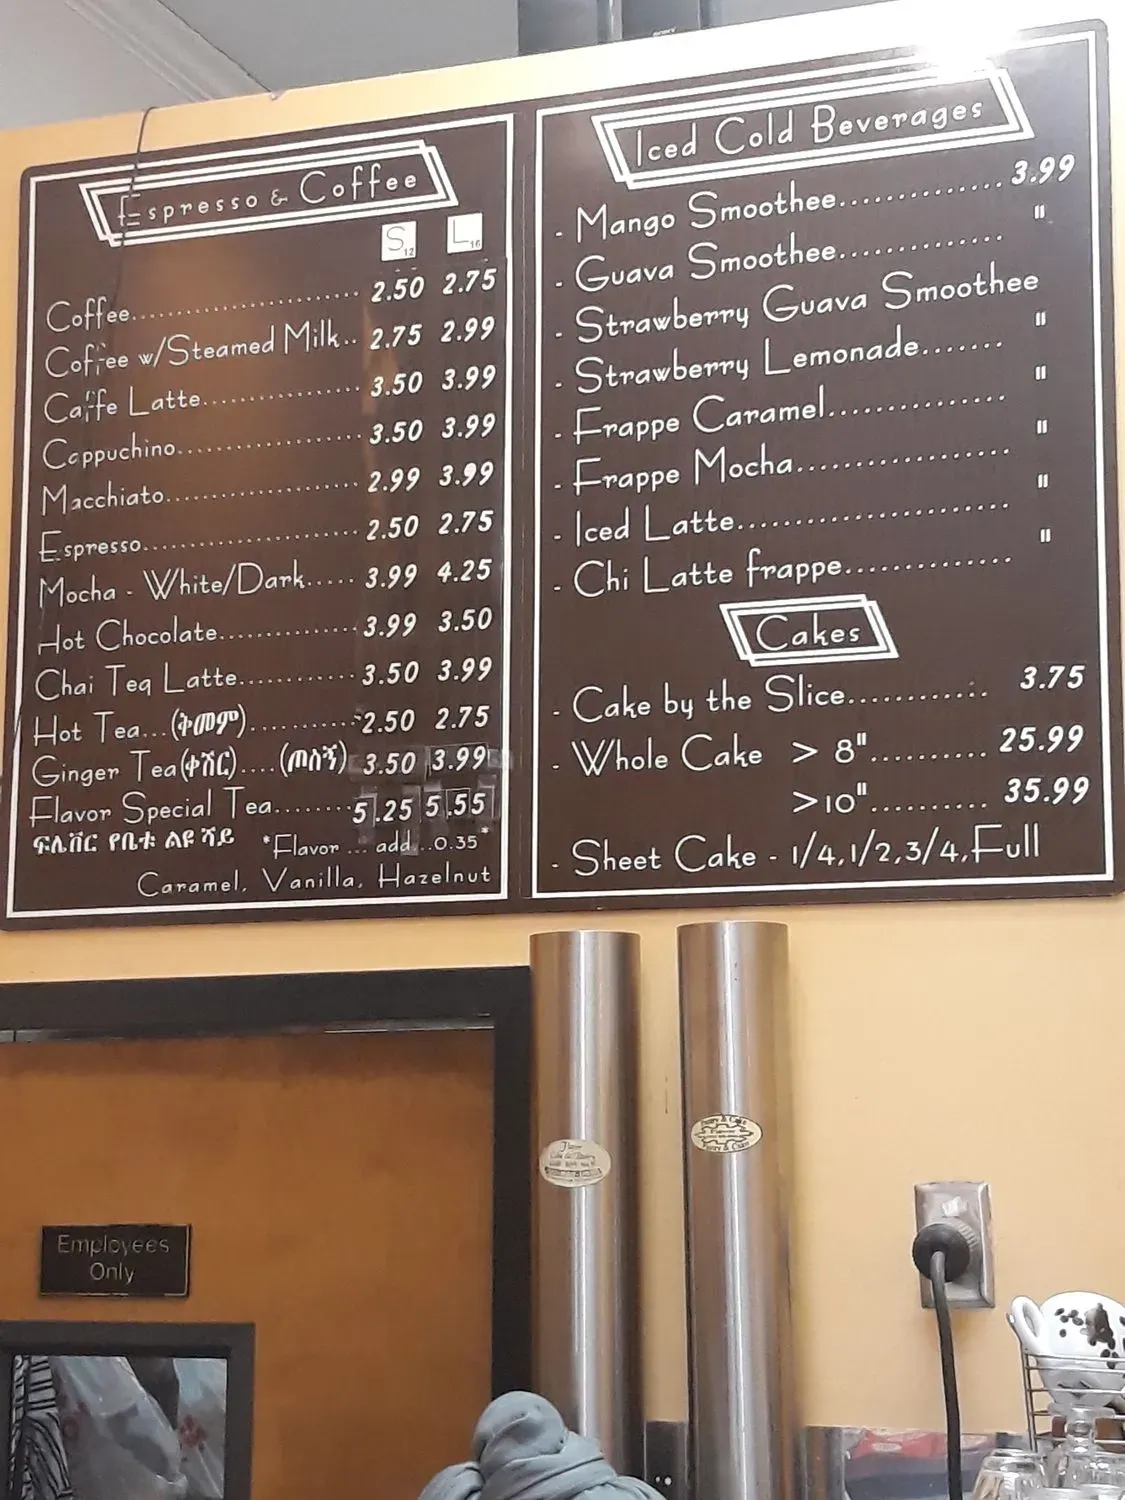 Espresso & Coffee
S 12 L 16
Coffee................................ 2.50 2.75
Coffee w/Steamed Milk.. 2.75 2.99
Caffe Latte...................... 3.50 3.99
Cappuchino......................... 3.50 3.99
Macchiato.......................... 2.99 3.99
Espresso............................. 2.50 2.75
Mocha - White/Dark..... 3.99 4.25
Hot Chocolate.................. 3.99 3.50
Chai Tea Latte................ 3.50 3.99
Hot Tea...(ቅመም)............ 2.50 2.75
Ginger Tea(ቀሽር)....(ጦስኝ) 3.50 3.99
Flavor Special Tea.......... 5.25 5.55
ፍሌቨር የቤቱ ልዩ ሻይ *Flavor ... add...0.35*
Caramel, Vanilla, Hazelnut
Iced Cold Beverages
- Mango Smoothee............... 3.99
- Guava Smoothee............... "
- Strawberry Guava Smoothee
- Strawberry Lemonade....... "
- Frappe Caramel................ "
- Frappe Mocha................... "
- Iced Latte........................ "
- Chi Latte frappe.............. "
Cakes
- Cake by the Slice............ 3.75
- Whole Cake > 8".......... 25.99
>10".......... 35.99
- Sheet Cake - 1/4,1/2,3/4,Full
Employees
Only